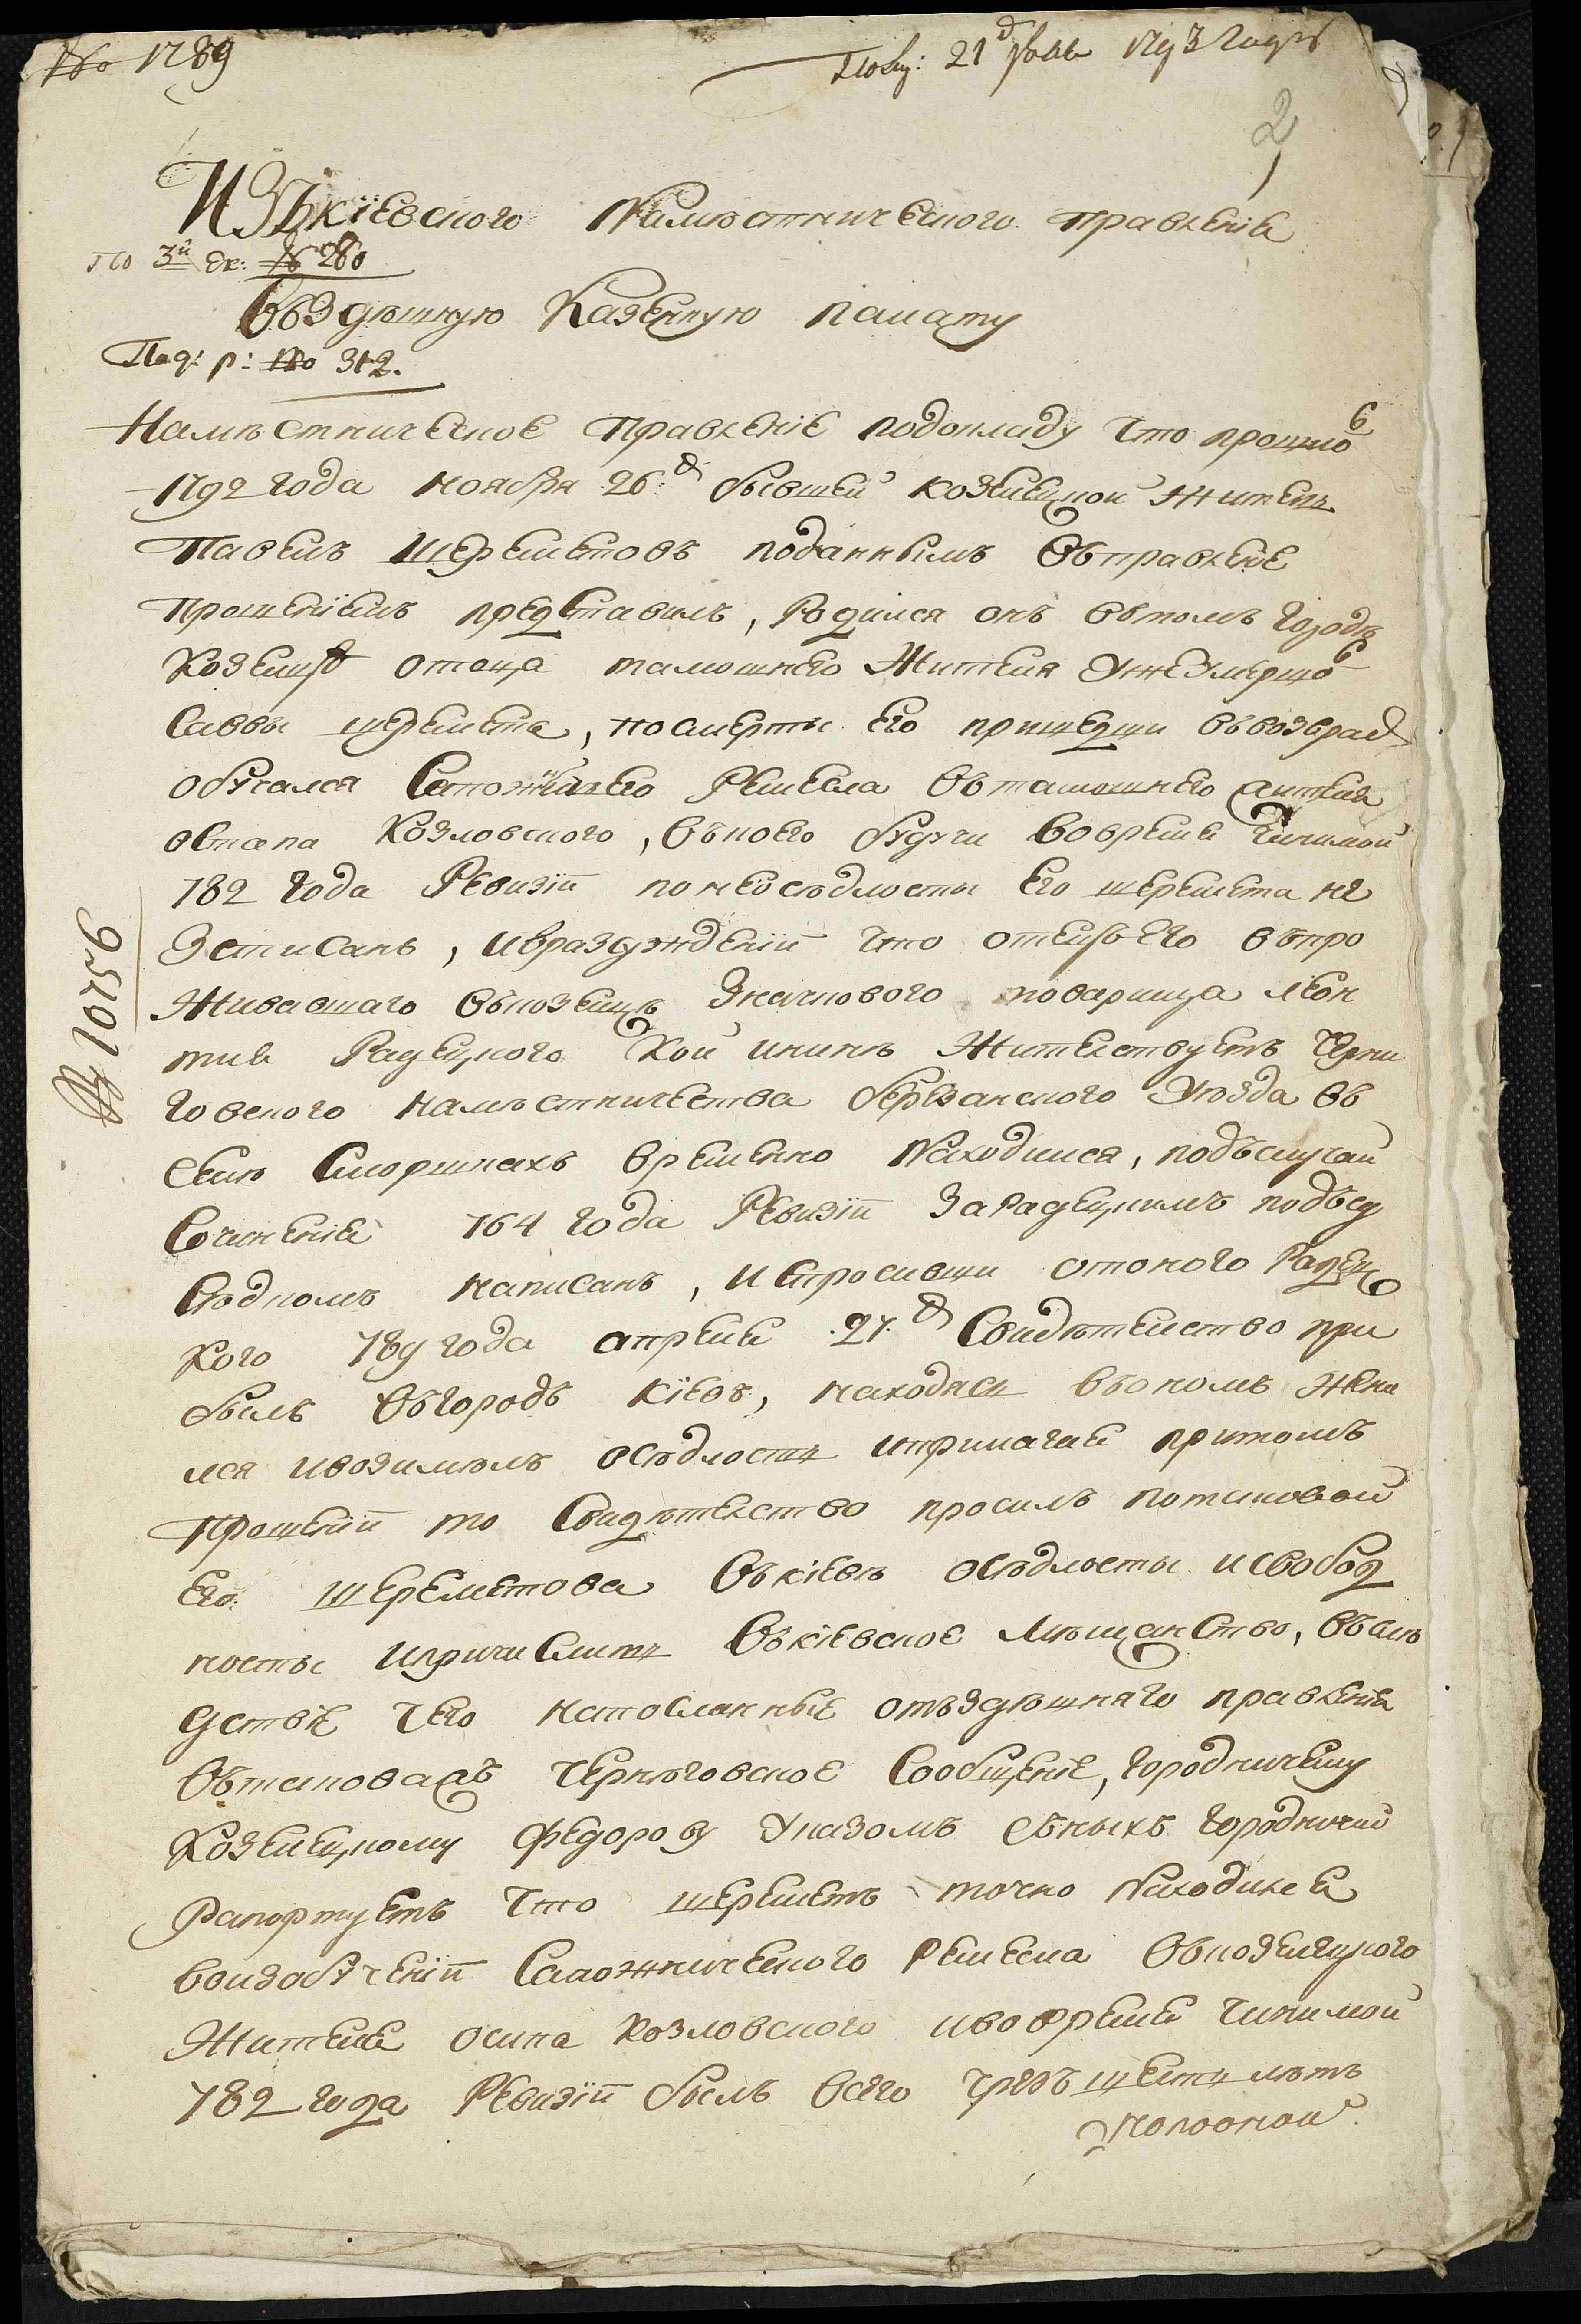 № 1789
Полу: 21 февр 1793 году
2
Изъ кіевского Намѣстнического правленія
по 3й эк: № 280
Въ здѣшную Казенную палату
Под: р: № 312.
Намѣстническое Правленіе по докладу что прошло го
1792 года ноября 26 д бывшей козелецкой житель
Павелъ Шереметовъ поданнымъ въ правленіе
прошеніемъ представилъ, родился онъ въ томъ городѣ
Козельцѣ от отца тамошнего жителя уже умершого
Саввы шеремета, по смерты его пришедши въ возраст
обучался Сапожницкого Ремесла въ тамошнего жителя
Остапа Козловского, въ коего будучи во время чинимой
782 года Ревизіи по неосѣдлосты его шеремета не
записанъ, и в разсужденіи что отецъ его въ про
живавшаго въ козельцѣ значкового товарища леон
тия Радецкого кой и нинѣ жителствуетъ Черни
говского намѣстничества березанского уезда въ
селѣ Сморшкахъ времѣнно Находился, под случай
Сочиненія 764 года Ревизіи за Радецкимъ подъсу
сѣдкомъ написанъ, и спросивши от оного Радец
кого 789 года апреля 27 д Свидѣтелство при
былъ въ городъ кіевъ, находясь въ ономъ жени
лся и возимѣлъ осѣдлость и прилагая при томъ
прошеніи то Свидѣтелство просилъ по таковой
его шереметова въ кіевѣ осѣдлосты и свобод
носты и причислить въ кіевское мѣщанство, въ слѣ
дствіе чего на посланные отъ здѣшняго правленія
въ таковаяжъ черниговское Сообщеніе, городничему
Козелецкому Федорову Указомъ съ ныхъ городничий
рапортуетъ что шереметъ точно Находился
во изобученіи Сапожнического ремесла въ козелецкого
жителя осипа козловского и во время чинимой
782 года Ревизіи былъ всего чрезъ шесть лѣтъ
№ 10756